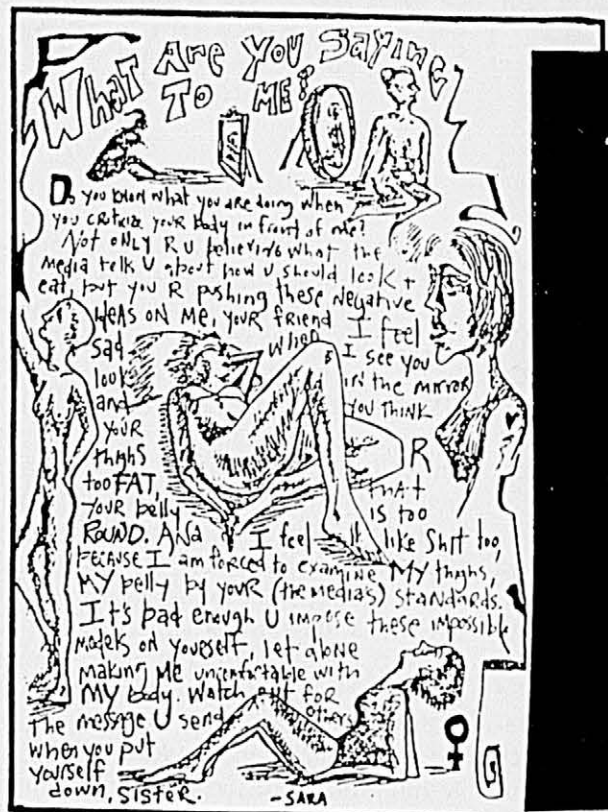 WHAT ARE YOU SAYING
TO ME?
Do you know what you are doing when
you criticize your body in front of me?
Not ONLY R U believing what the
media tells U about how U should look +
eat, but you R pushing these negative
ideas ON ME, YOUR FRIEND I feel
sad when I see you
look in the mirror
and YOU THINK
YOUR
thighs R
too FAT, that
YOUR belly is too
ROUND. And I feel like shit too,
because I am forced to examine MY thighs,
MY belly by YOUR (the media's) standards.
It's bad enough U impose these impossible
models on yourself, let alone
making ME uncomfortable with
MY body. Watch out for
The message U send others
when you put
yourself
down, SISTER.
-SARA